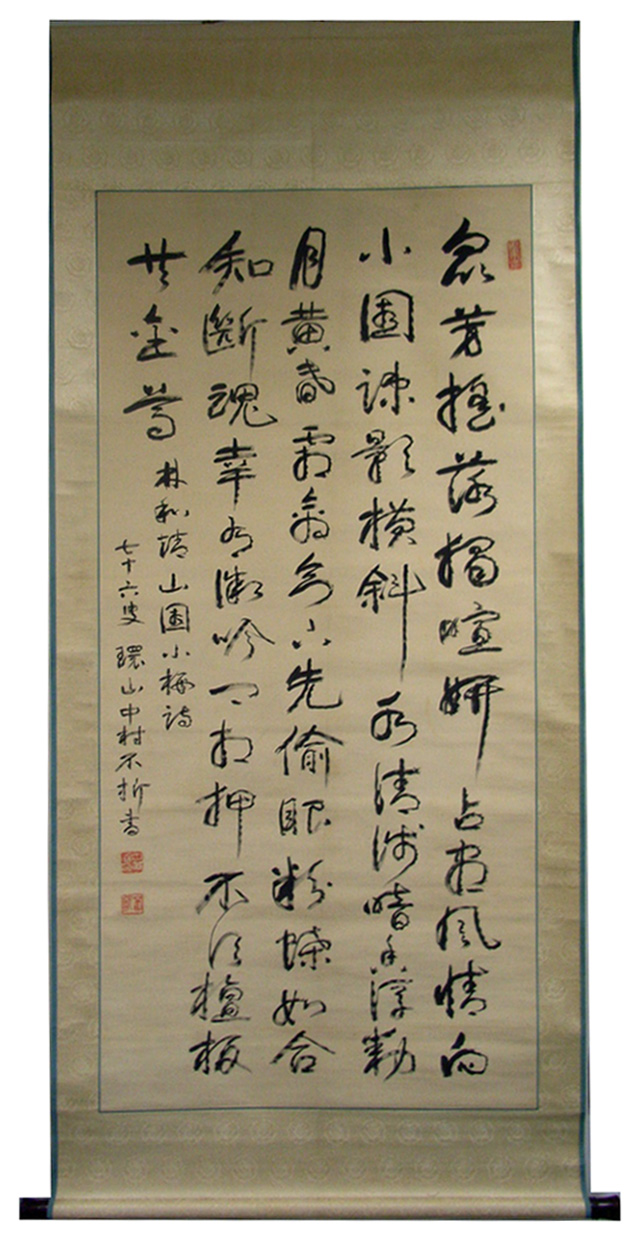 衆芳搖落獨暄妍占盡風情向
小園疎影横斜水清浅暗香浮動
月黄昏霜禽欲下先偷眼粉蝶如合
知斷魂幸有微吟可相狎不須檀板
共金尊 林和靖山園小梅詩
七十六叟 環山中村不折書